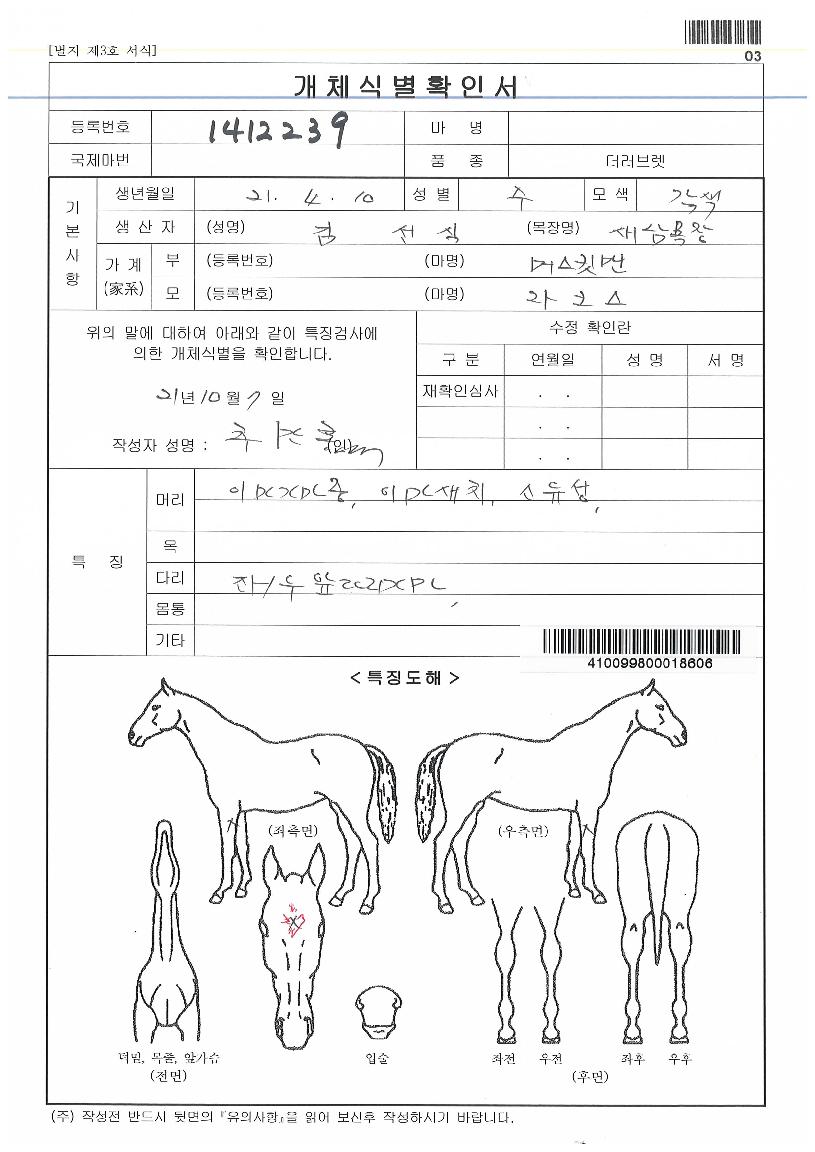 [별지 제3호 서식]
03
개체식별확인서
등록번호 1412239 마 명
국제마번 품 종 더러브렛
기본사항
생년월일 21. 4. 10 성별 수 모색 갈색
생산자 (성명) 김 선 식 (목장명)
가계 (家系) 부 (등록번호) (마명) 머스킷맨
모 (등록번호) (마명) 라 크 스
위의 말에 대하여 아래와 같이 특징검사에
의한 개체식별을 확인합니다.
21년 10월 7일
작성자 성명 : (인)
수정 확인란
구 분 연월일 성 명 서 명
재확인심사 . .
. .
. .
특 징
머리
목
다리 좌/우
몸통
기타
410099800018606
< 특징도해 >
(좌측면) (우측면)
턱밑, 목줄, 앞가슴
(전면)
입술
좌전 우전 좌후 우후
(후면)
(주) 작성전 반드시 뒷면의 『유의사항』을 읽어 보신후 작성하시기 바랍니다.